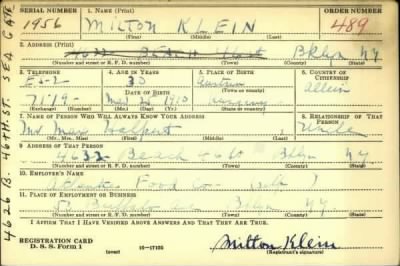 SERIAL NUMBER 1. NAME (Print) ORDER NUMBER
1956 MILTON KLEIN 489
(First) (Middle) (Last)
2. ADDRESS (Print)
4632 BEACH Bklyn NY
(Number and street or R. F. D. number) (Town) (County) (State)
3. TELEPHONE 4. AGE IN YEARS 5. PLACE OF BIRTH 6. COUNTRY OF CITIZENSHIP
Es-2- Austria
DATE OF BIRTH
7119- 1910 Alien
(Exchange) (Number) (Mo.) (Day) (Yr.) (State or country)
7. NAME OF PERSON WHO WILL ALWAYS KNOW YOUR ADDRESS 8. RELATIONSHIP OF THAT PERSON
Mr Max Uncle
(Mr., Mrs., Miss) (First) (Middle) (Last)
9. ADDRESS OF THAT PERSON
4632 Beach Bklyn NY
(Number and street or R. F. D. number) (Town) (County) (State)
10. EMPLOYER'S NAME
Atlantic Food Co
11. PLACE OF EMPLOYMENT OR BUSINESS
Buffalo Ave Bklyn NY
(Number and street or R. F. D. number) (Town) (County) (State)
I AFFIRM THAT I HAVE VERIFIED ABOVE ANSWERS AND THAT THEY ARE TRUE.
REGISTRATION CARD
D. S. S. Form 1 (over) 16-17105 Milton Klein
(Registrant's signature)
4626 B. 46TH ST. SEA GATE